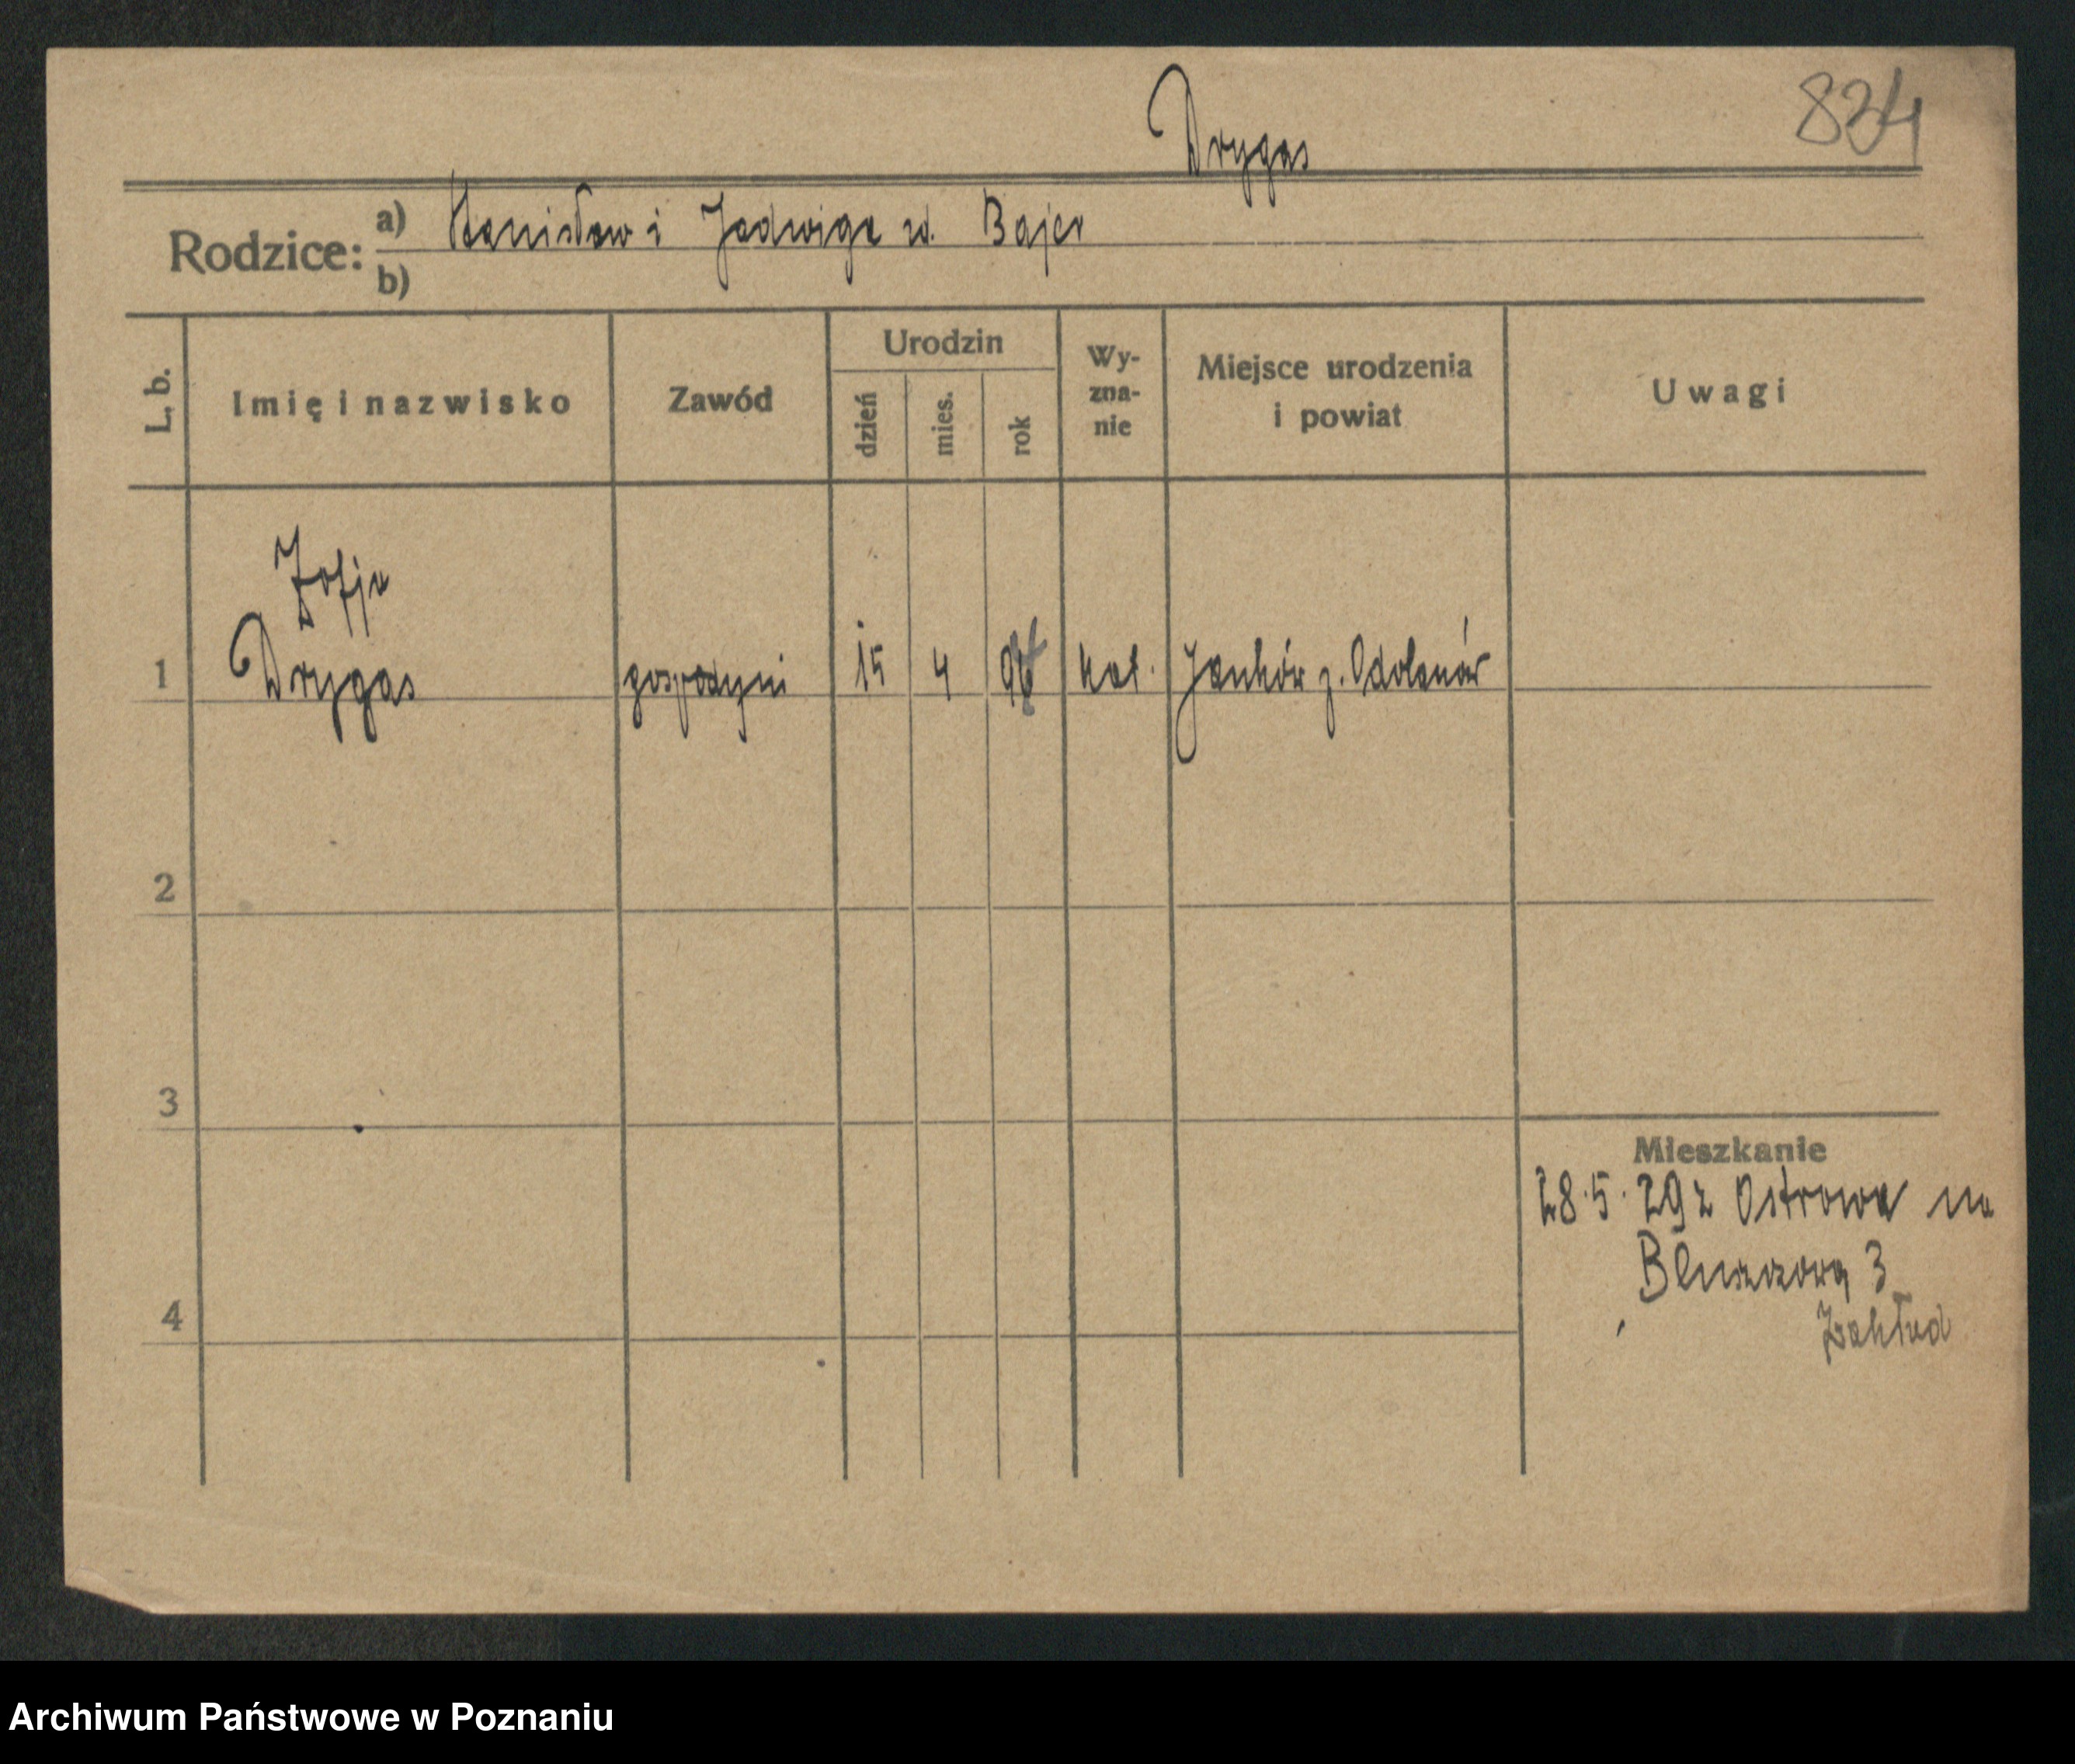 834
Drygas
Rodzice: a) Stanisław i Jadwiga ur. Bajer
b)
L. b.
Imię i nazwisko
Zawód
Urodzin
dzień
mies.
rok
Wy-
zna-
nie
Miejsce urodzenia
i powiat
Uwagi
Zofja
1 Drygas gospodyni 15 4 kat. Janków p. Odolanów
2
3
4
Mieszkanie
28.5.29 z Ostrowa na
Bluszczową 3
Zakład
Archiwum Państwowe w Poznaniu